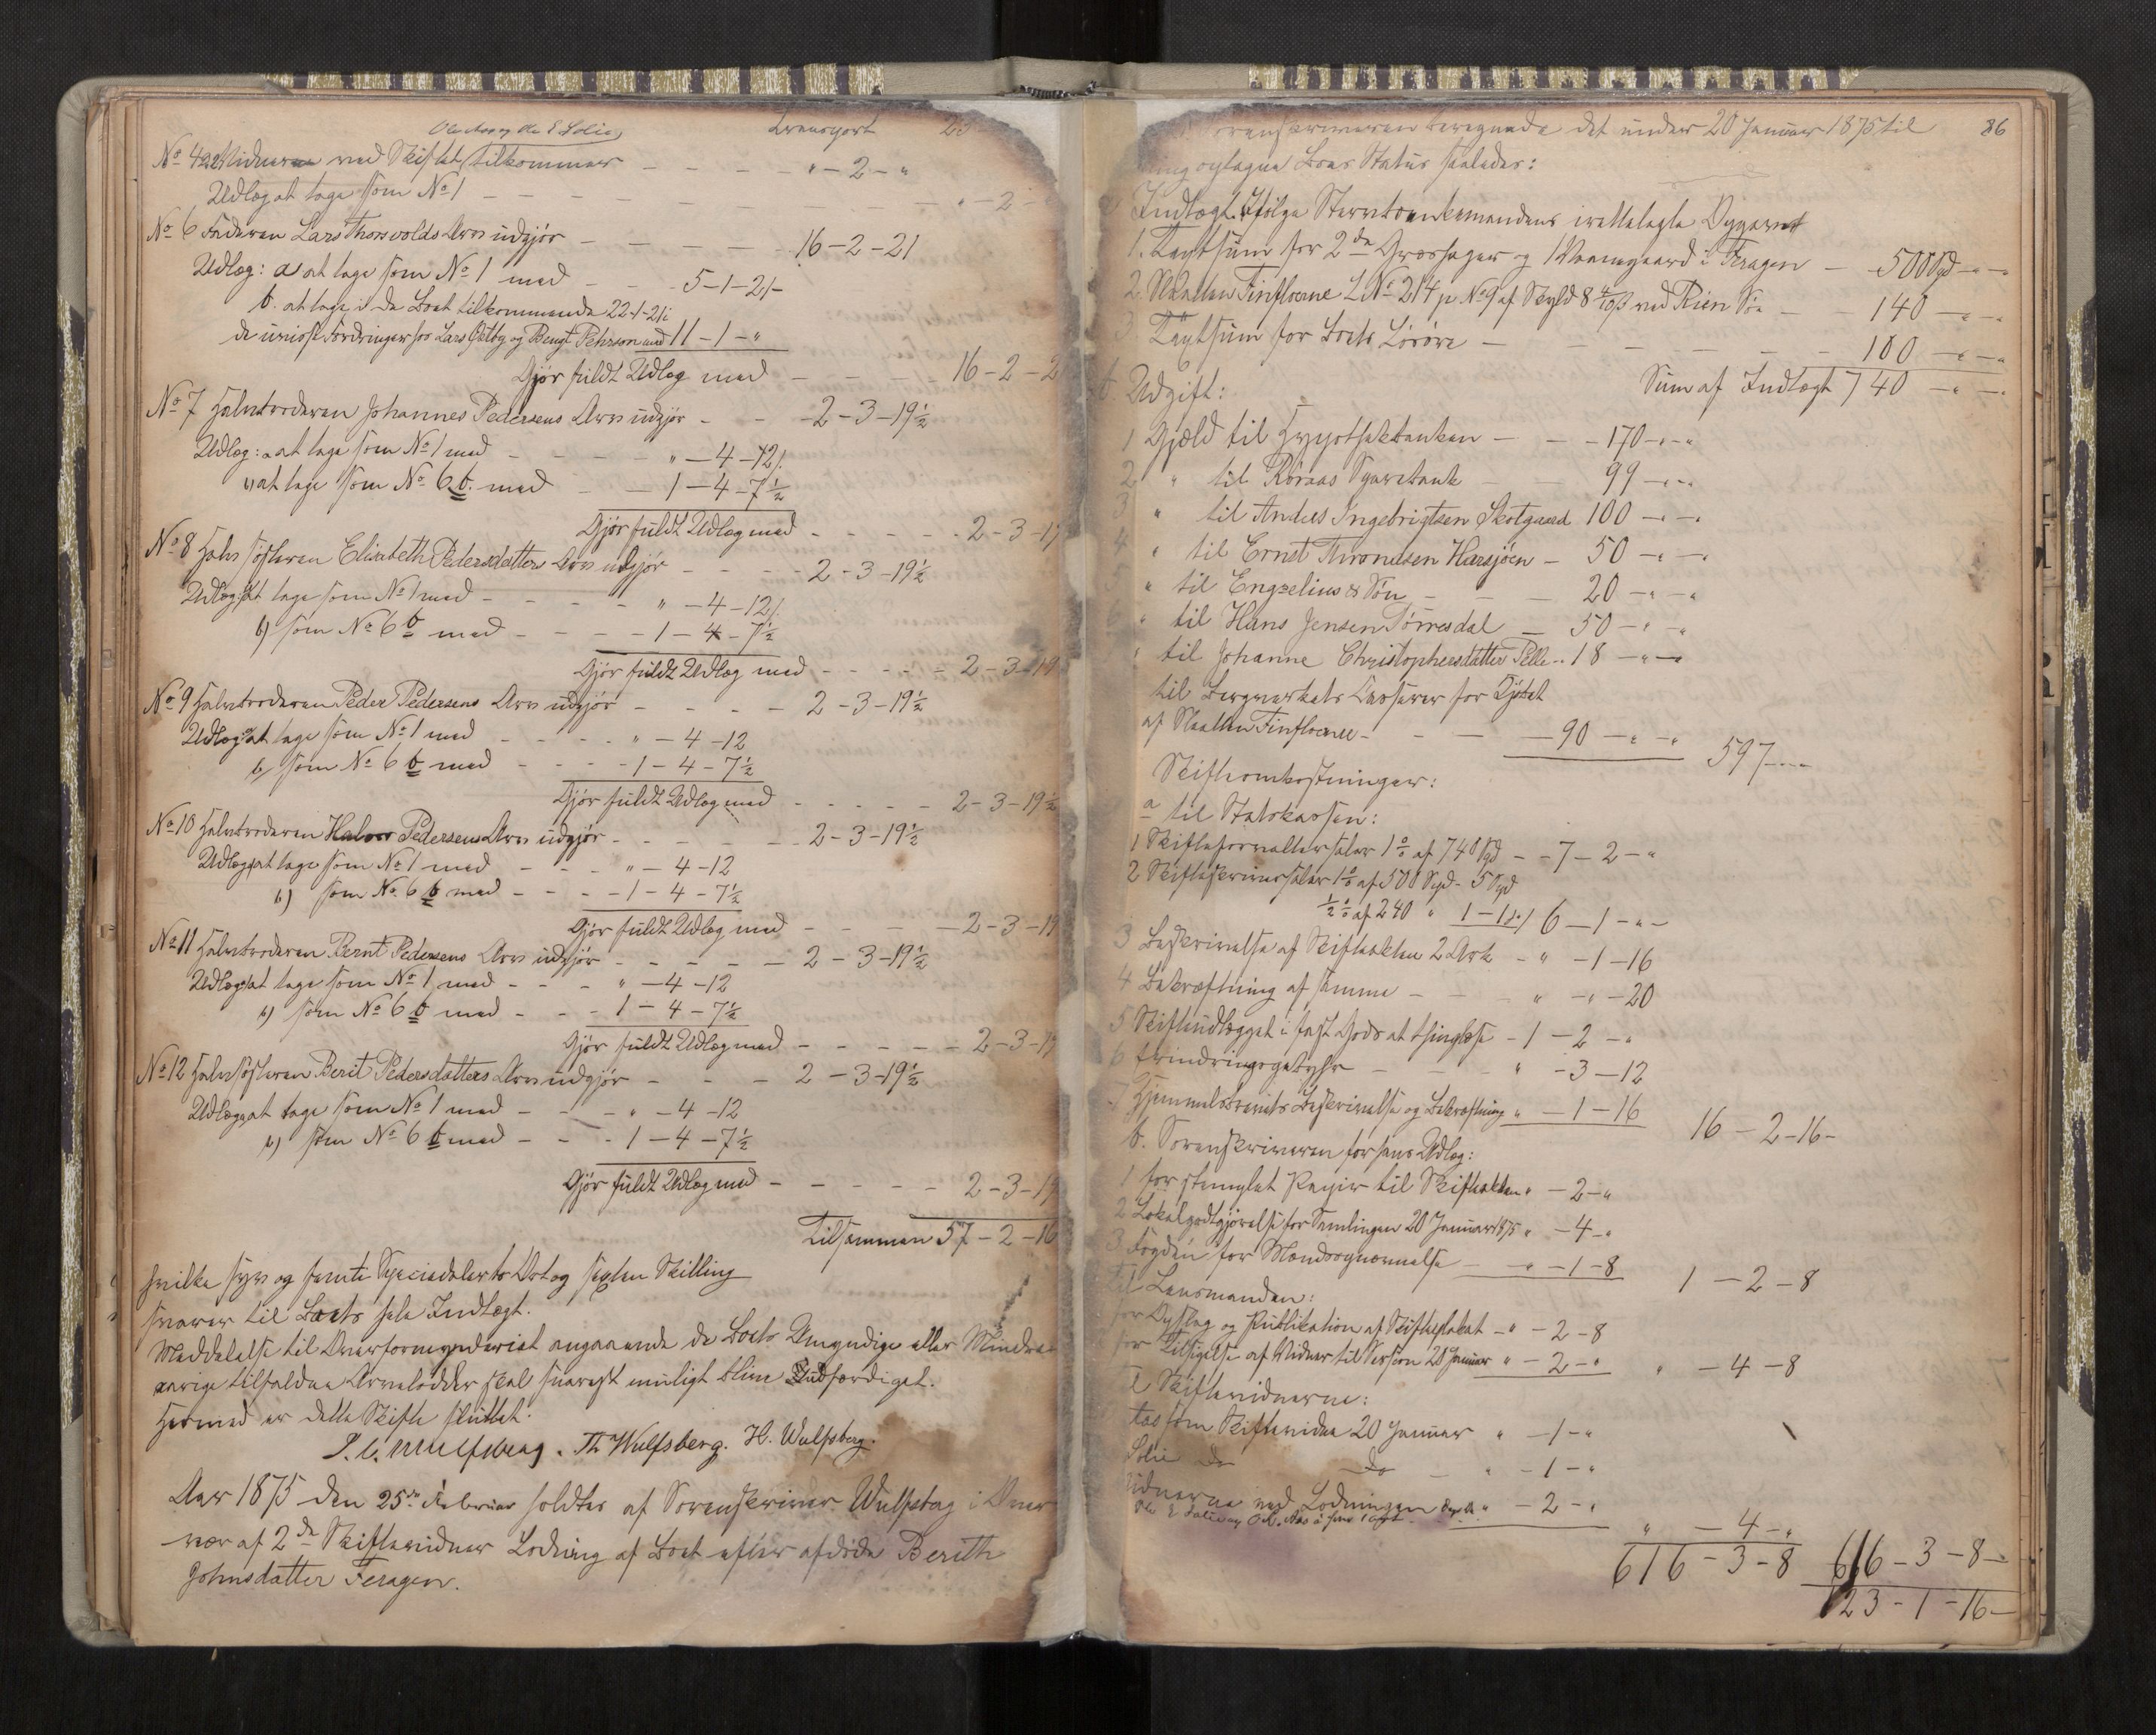 Ole Aas og Ole E Solie,
Transport 25
No 4 a 2 Vidnerne ved Skiftet tilkommer - - - " - 2 - "
Udlæg at tage som No 1 - - - - " - 2 -
No 6 Faderen Lars Thorsvolds Arv udgjør - - - - 16-2-21
Udlæg: a at tage som No 1 med - - 5-1-21
b. at tage i de Boet tilkommende 22-1-21 i
de urisse Fordringer hos Lars Østby og Bengt Pehrson med 11-1-"
Gjør fuldt Udlæg med - - - 16-2-2
No 7 Halvbroderen Johannes Pedersens Arv udgjør - - 2-3-19½
Udlæg: a at tage som No 1 med - - - " - 4 - 12
b) at tage som No 6 b. med - - 1-4-7½
Gjør fuldt Udlæg med - - - 2-3-19
No 8 Halvsøsteren Elisabeth Pedersdatters Arv udgjør - - - 2-3-19½
Udlæg: a at tage som No 1 med - - - " - 4 - 12
b) som No 6 b med - - - 1-4-7½
Gjør fuldt Udlæg med - - - 2-3-19
No 9 Halvbroderen Peder Pedersens Arv udgjør - - - - 2-3-19½
Udlæg: a at tage som No 1 med - - - " - 4 - 12
b) som No 6 b med - - - 1-4-7½
Gjør fuldt Udlæg med - - - - 2-3-19½
No 10 Halvbroderen Halvor Pedersens Arv udgjør - - - - 2-3-19½
Udlæg a at tage som No 1 med - - - " - 4 - 12
b) som No 6 b med - - - 1-4-7½
Gjør fuldt Udlæg med - - - 2-3-19
No 11 Halvbroderen Bernt Pedersens Arv udgjør - - - - 2-3-19½
Udlæg a at tage som No 1 med - - - " - 4 - 12
b) som No 6 b med - - - 1-4-7½
Gjør fuldt Udlæg med - - - - 2-3-19
No 12 Halvsøsteren Berit Pedersdatters Arv udgjør - - - 2-3-19½
Udlæg a at tage som No 1 med - - - " - 4 - 12
b) som No 6 b med - - - 1-4-7½
Gjør fuldt Udlæg med - - - - 2-3-19
Tilsammen 57-2-16
hvilke syv og femti Speciedaler to Ort og sexten Skilling
svarer til Boets hele Indtægt.
Meddelelse til Overformynderiet angaaende de Boets Umyndige eller Mindre-
aarige tilfaldne Arvelodder skal snarest muligt blive udfærdiget.
Hermed er dette Skifte sluttet.
Wulfsberg. Th Wulfsberg. H. Wulfsberg.
Aar 1875 den 25de Februar holdtes af Sorenskriver Wulfsberg i Over-
vær af 2de Skiftevidner Lodning af Boet efter afdøde Berith
Johnsdatter Feragen.
86
Sorenskriveren beregnede det under 20 Januar 1875 til
optagne Boes Status saaledes:
Indtægt. Ifølge Stervboenkemandens irettelagte Opgave
1. Taxtsum for 2de Græshager og 1 Vaaningaard i Feragen - 500 Spd - " -
2. Slaatten Finfloerne L No 214 p No 9 af Skyld 8 4/10 ß ved Rien Sø - - 140 - " - "
3 Taxtsum for Boets Løsøre - - - - - 100 - " - "
Sum af Indtægt 740 - " - "
b Udgift:
1 Gjæld til Hypothekbanken - - - 170 - " - "
2 " til Røraas Sparebank - 99 - " - "
3 " til Anders Ingebrigtsen Skotgaard 100 - " - "
4 " til Ernst Thronsen Harsjøen - 50 - " - "
5 " til Engzelius & Søn - - - 20 - " - "
6 " til Hans Jensen Tørresdal - 50 - " - "
" til Johanne Christophersdatter Pelle - 18 - " - "
til Bergverkets Casserer for Kjøbet
af Slaatten Finfloerne - - - - 90 - " - " 597 - - -
Skifteomkostninger:
a til Statskassen:
1 Skifteforvaltersalær 1% af 740 Spd - - 7-2-"
2 Skifteskriversalær 1% af 500 Spd - 5 Spd
½% af 240 " 1-1 6-1-"-
3 Beskrivelse af Skifteakten 2 Ark - " - 1-16
4 Bekræftning af samme - - - " - " - 20
5 Skifteudlægget i fast Gods at thinglæse - 1-2-"
6 Erindringsgebyhr - - - " - 3-12
7 Hjemmelsbrevets Beskrivelse og Bekræftning " - 1-16 16-2-16-
b. Sorenskriveren for hans Udlæg:
1 for stemplet Papir til Skifteakten " - 2-"
2 Lokalgodtgjørelse for Samlingen 20 Januar 1875 " - 4-"
3 Fogden for Mændsopnævnelse - - " - 1-8 1-2-8
Til Lensmanden:
for Opslag og Publikation af Skifteplakat - " - 2-8
for Tilsigelse af Vidner til Session 20 Januar " - 2-" " - 4-8
til Skiftevidnerne:
Aas som Skiftevidne 20 Januar " - 1-"
Solie do do - " - 1-"
Vidnerne ved Lodningen " - 2-"
Ole E Solie og O. K. Aas á hver 1 Ort
" - 4-"
616-3-8 616-3-8-
123-1-16-